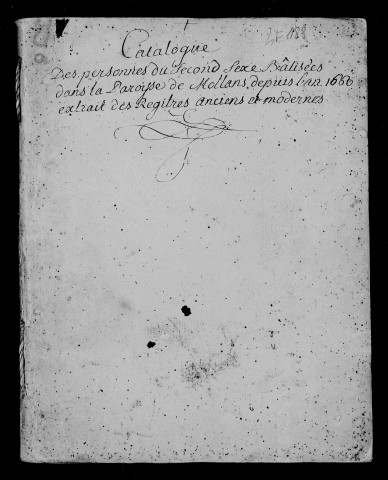 Catalogue
Des personnes du Second Sexe Bâtisées
dans la Paroisse de Mollans, depuis l'an 1666
extrait des Regitres anciens et modernes